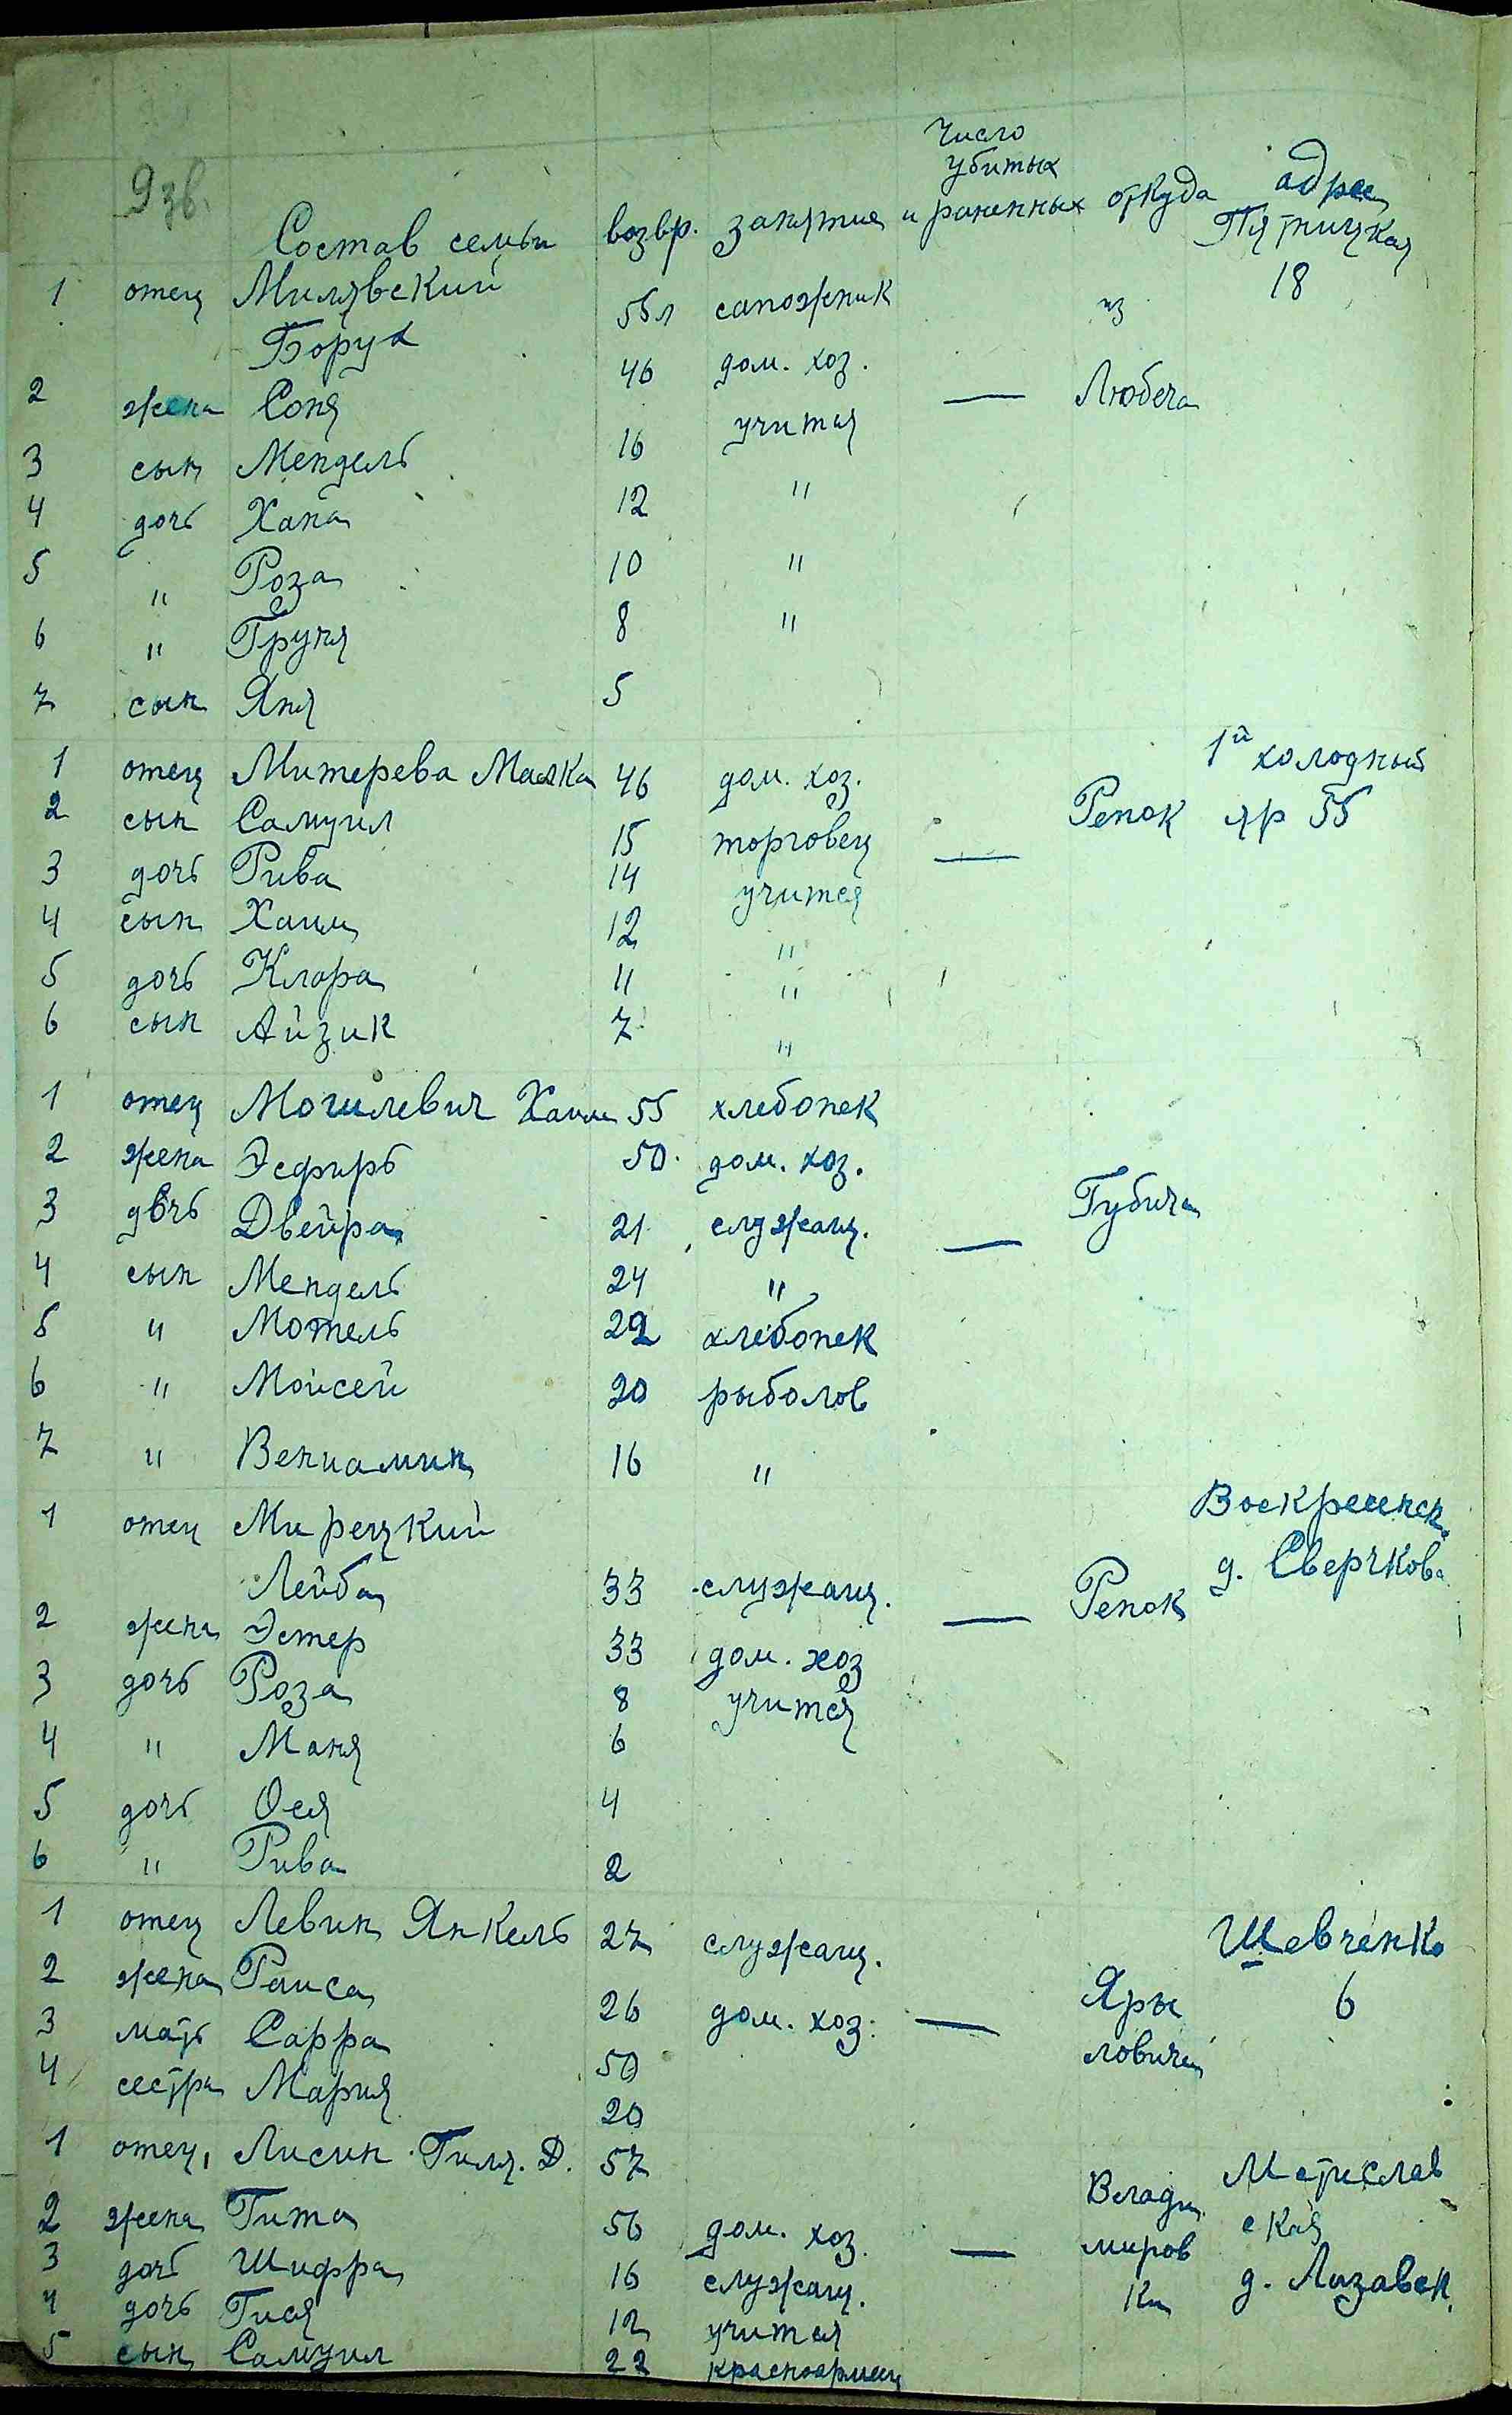 9 зв.
Состав семьи возвр. занятие Число убитых и раненных откуда адрес
Пятницкая 18
1 отец Милявский Борух 55 л сапожник из
2 жена Соня 46 дом. хоз. — Любеча
3 сын Мендель 16 учится
4 дочь Хана 12 "
5 " Роза 10 "
6 " Груня 8 "
7 сын Яня 5
1 отец Митерева Малка 46 дом. хоз. 1й холодный
2 сын Самуил 15 торговец — Репок яр 55
3 дочь Рива 14 учится
4 сын Хаим 12 "
5 дочь Клара 11 "
6 сын Айзик 7 "
1 отец Могилевич Хаим 55 хлебопек
2 жена Эсфирь 50 дом. хоз.
3 дочь Двейра 21 служащ. — Губича
4 сын Мендель 24 "
5 " Мотель 22 хлебопек
6 " Мойсей 20 рыболов
7 " Вениамин 16 "
1 отец Мирецкий Воскресенск.
Лейба 33 служащ. — Репок д. Сверчкова
2 жена Эстер 33 дом. хоз
3 дочь Роза 8 учится
4 " Маня 6
5 дочь Ося 4
6 " Рива 2
1 отец Левин Янкель 27 служащ. Шевченко
2 жена Раиса 26 дом. хоз. — Яры 6
3 мать Сарра 50 ловичи
4 сестра Мария 20
1 отец Лисин Гиля. Д. 57 Влади Мстислав
2 жена Гита 56 дом. хоз. — миров ская
3 дочь Шифра 16 служащ. ки д. Лизавен.
4 дочь Гися 12 учится
5 сын Самуил 22 красноармеец